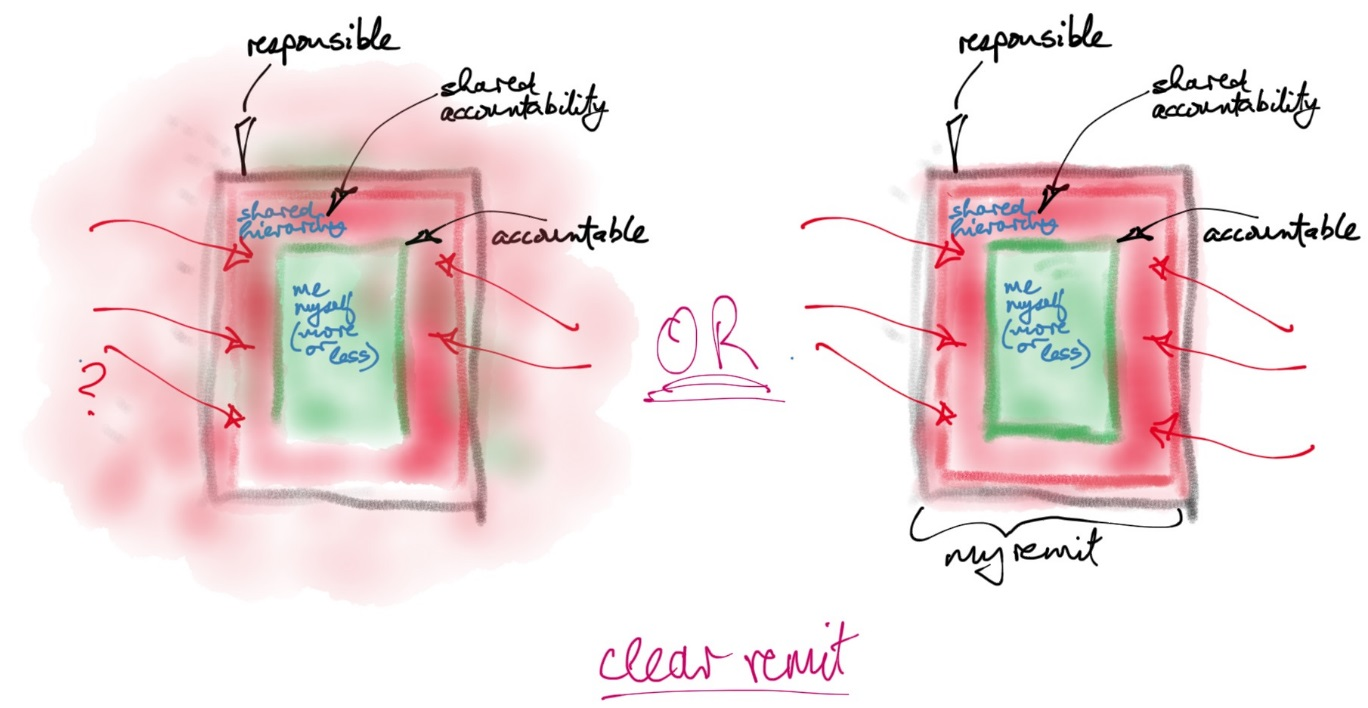 responsible
shared
accountability
shared
hierarchy
accountable
me
myself
(more
or less)
?
OR
responsible
shared
accountability
shared
hierarchy
accountable
me
myself
(more
or less)
my remit
clear remit